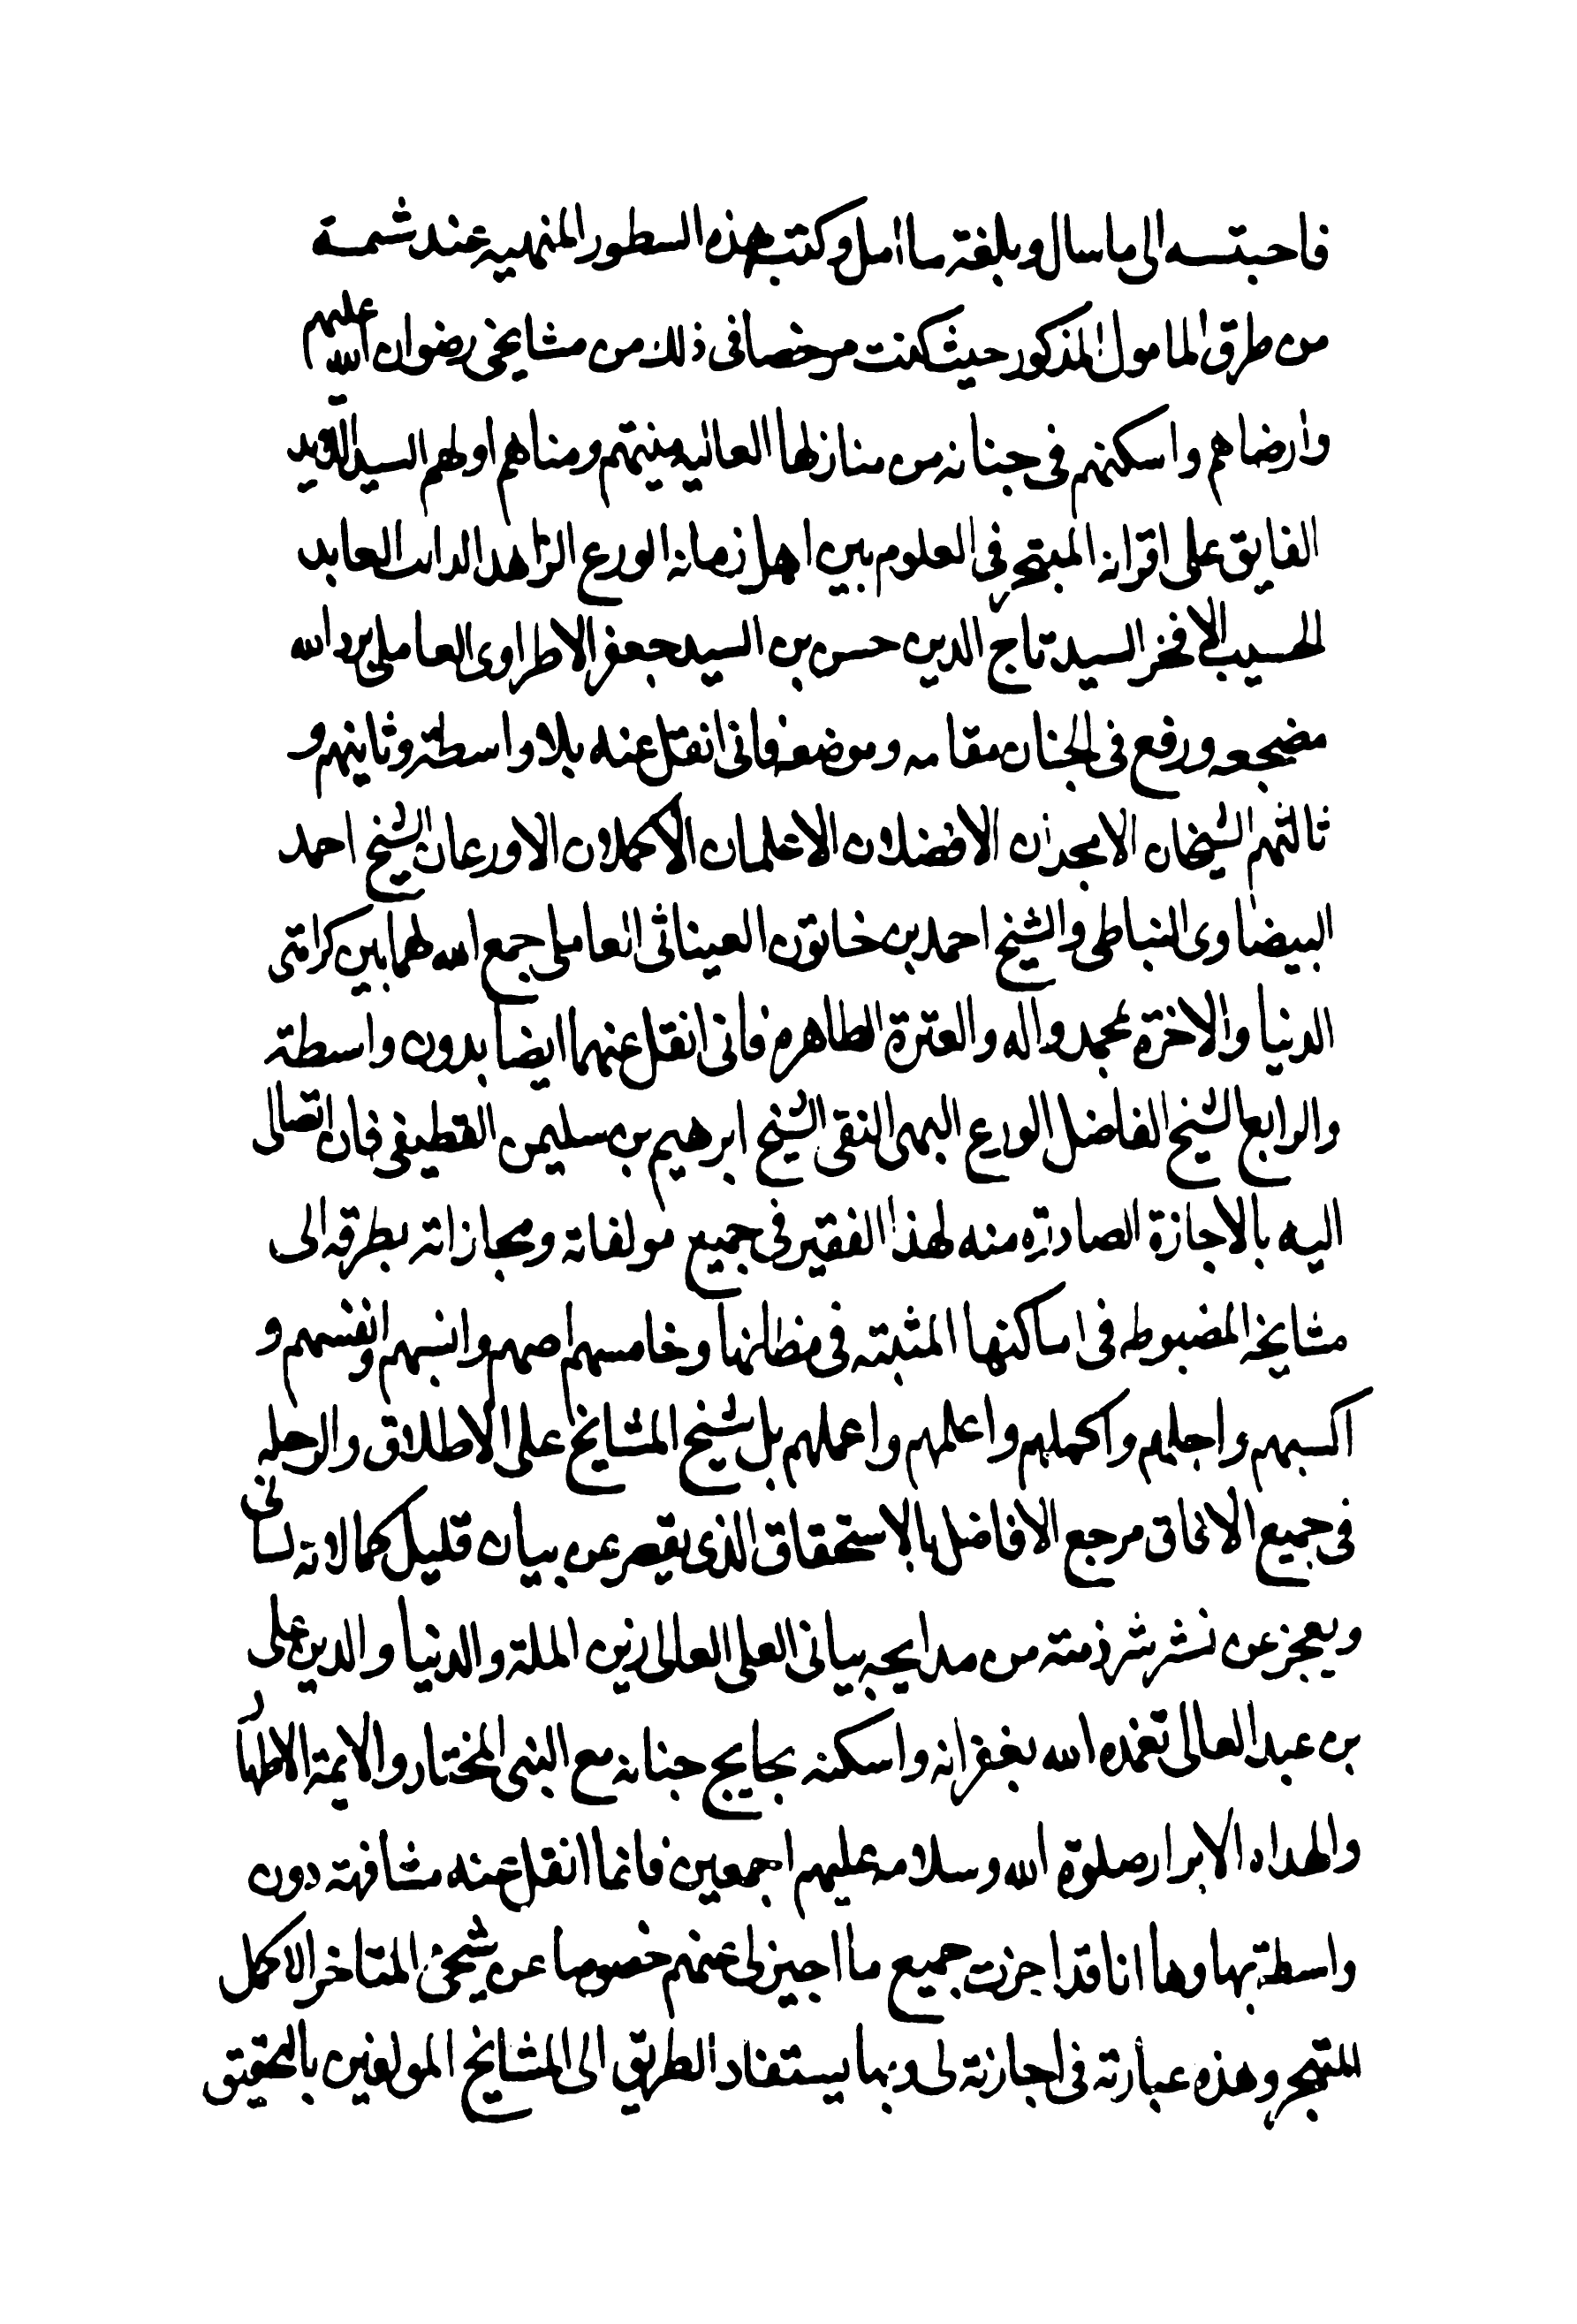 فاجبته الى ما سال وبلغته ما امل وكتبت هذه السطور المنهيه عند شمة
من طرق المامول المذكور حيث كنت مرخصا فى ذلك من مشايخى رضوان الله عليهم
وارضاهم واسكنهم فى جنانه من منازلها العاليه منيتهم ومناهم اولهم السيد
الفايق على اقرانه المتبحر فى العلوم بين اهل زمانه الورع الزاهد العابد
الحسيب الافخر السيد تاج الدين حسن بن السيد جعفر الاطراوى العاملى برد الله
مضجعه ورفع فى الجنان مقامه وموضعه فانى انقل عنه بلا واسطة وثانيهم و
ثالثهم الشيخان الامجدان الافضلان الاعلمان الاكملان الاورعان الشيخ احمد
البيضاوى النباطى والشيخ احمد بن خاتون العيناثى العاملى جمع الله لهما بين كرامتى
الدنيا والاخرة بمحمد واله والعترة الطاهره فانى انقل عنهما ايضا بدون واسطة
والرابع الشيخ الفاضل الورع البهى النقى الشيخ ابرهيم بن سليمن القطيفى فان اتصالى
اليه بالاجازة الصادرة منه لهذا الفقير فى جميع مولفاته ومجازاته بطرقه الى
مشايخه المضبوطه فى اماكنها المثبته فى مظانها وخامسهم وانسبهم وانفسهم و
اكسبهم واجلهم واكملهم واعلمهم واعملهم بل شيخ المشايخ على الاطلاق والرحله
فى جميع الافاق مرجع الافاضل بالاستحقاق الذى يقصر عن بيان قليل كمالاته لسانى
ويعجز عن نشر شرذمة من مدايحه بيانى العلى العالى زين الملة والدنيا والدين على
بن عبد العالى تغمده الله بغفرانه واسكنه بحابح جنانه مع النبى المختار والايمة الاطهار
والهداه الابرار صلوة الله وسلامه عليهم اجمعين فانما انقل عنه مشافهة دون
واسطة بها وها انا قد اجزت جميع ما اجيز لى عنهم خصوصا عن شيخى المتاخر الاكمل
المتبحر وهذه عبارته فى اجازته لى وبها يستفاد الطريق الى المشايخ المولفين بالتحقيق